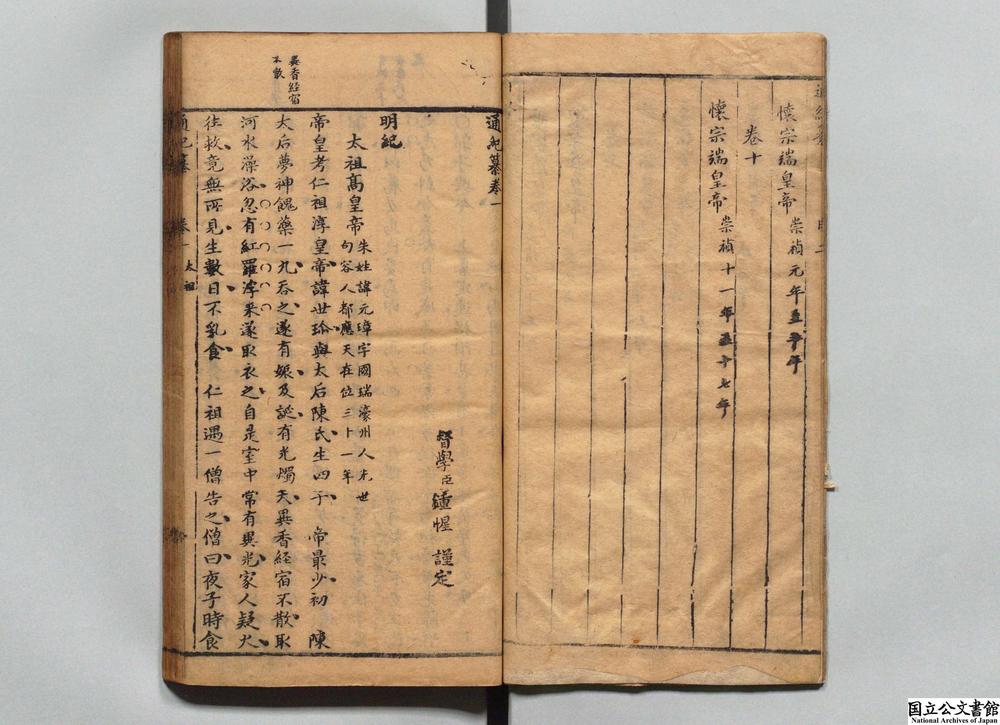 懷宗端皇帝 崇禎元年至十年
卷十
懷宗端皇帝 崇禎十一年至十七年
通紀纂卷一
督學臣鍾惺 謹定
明紀
太祖高皇帝 朱姓諱元璋字國瑞濠州人先世
句容人都應天在位三十一年
帝皇考仁祖淳皇帝諱世珍與太后陳氏生四子 帝最少初 陳
太后夢神餽藥一丸吞之遂有娠及誕有光燭天異香経宿不散取
河水澡浴忽有紅羅浮来遂取衣之自是室中常有異光家人疑火
往救竟無所見生數日不乳食 仁祖遇一僧告之僧曰夜子時食
異香経宿
不散
通紀纂 卷一 太祖
国立公文書館
National Archives of Japan